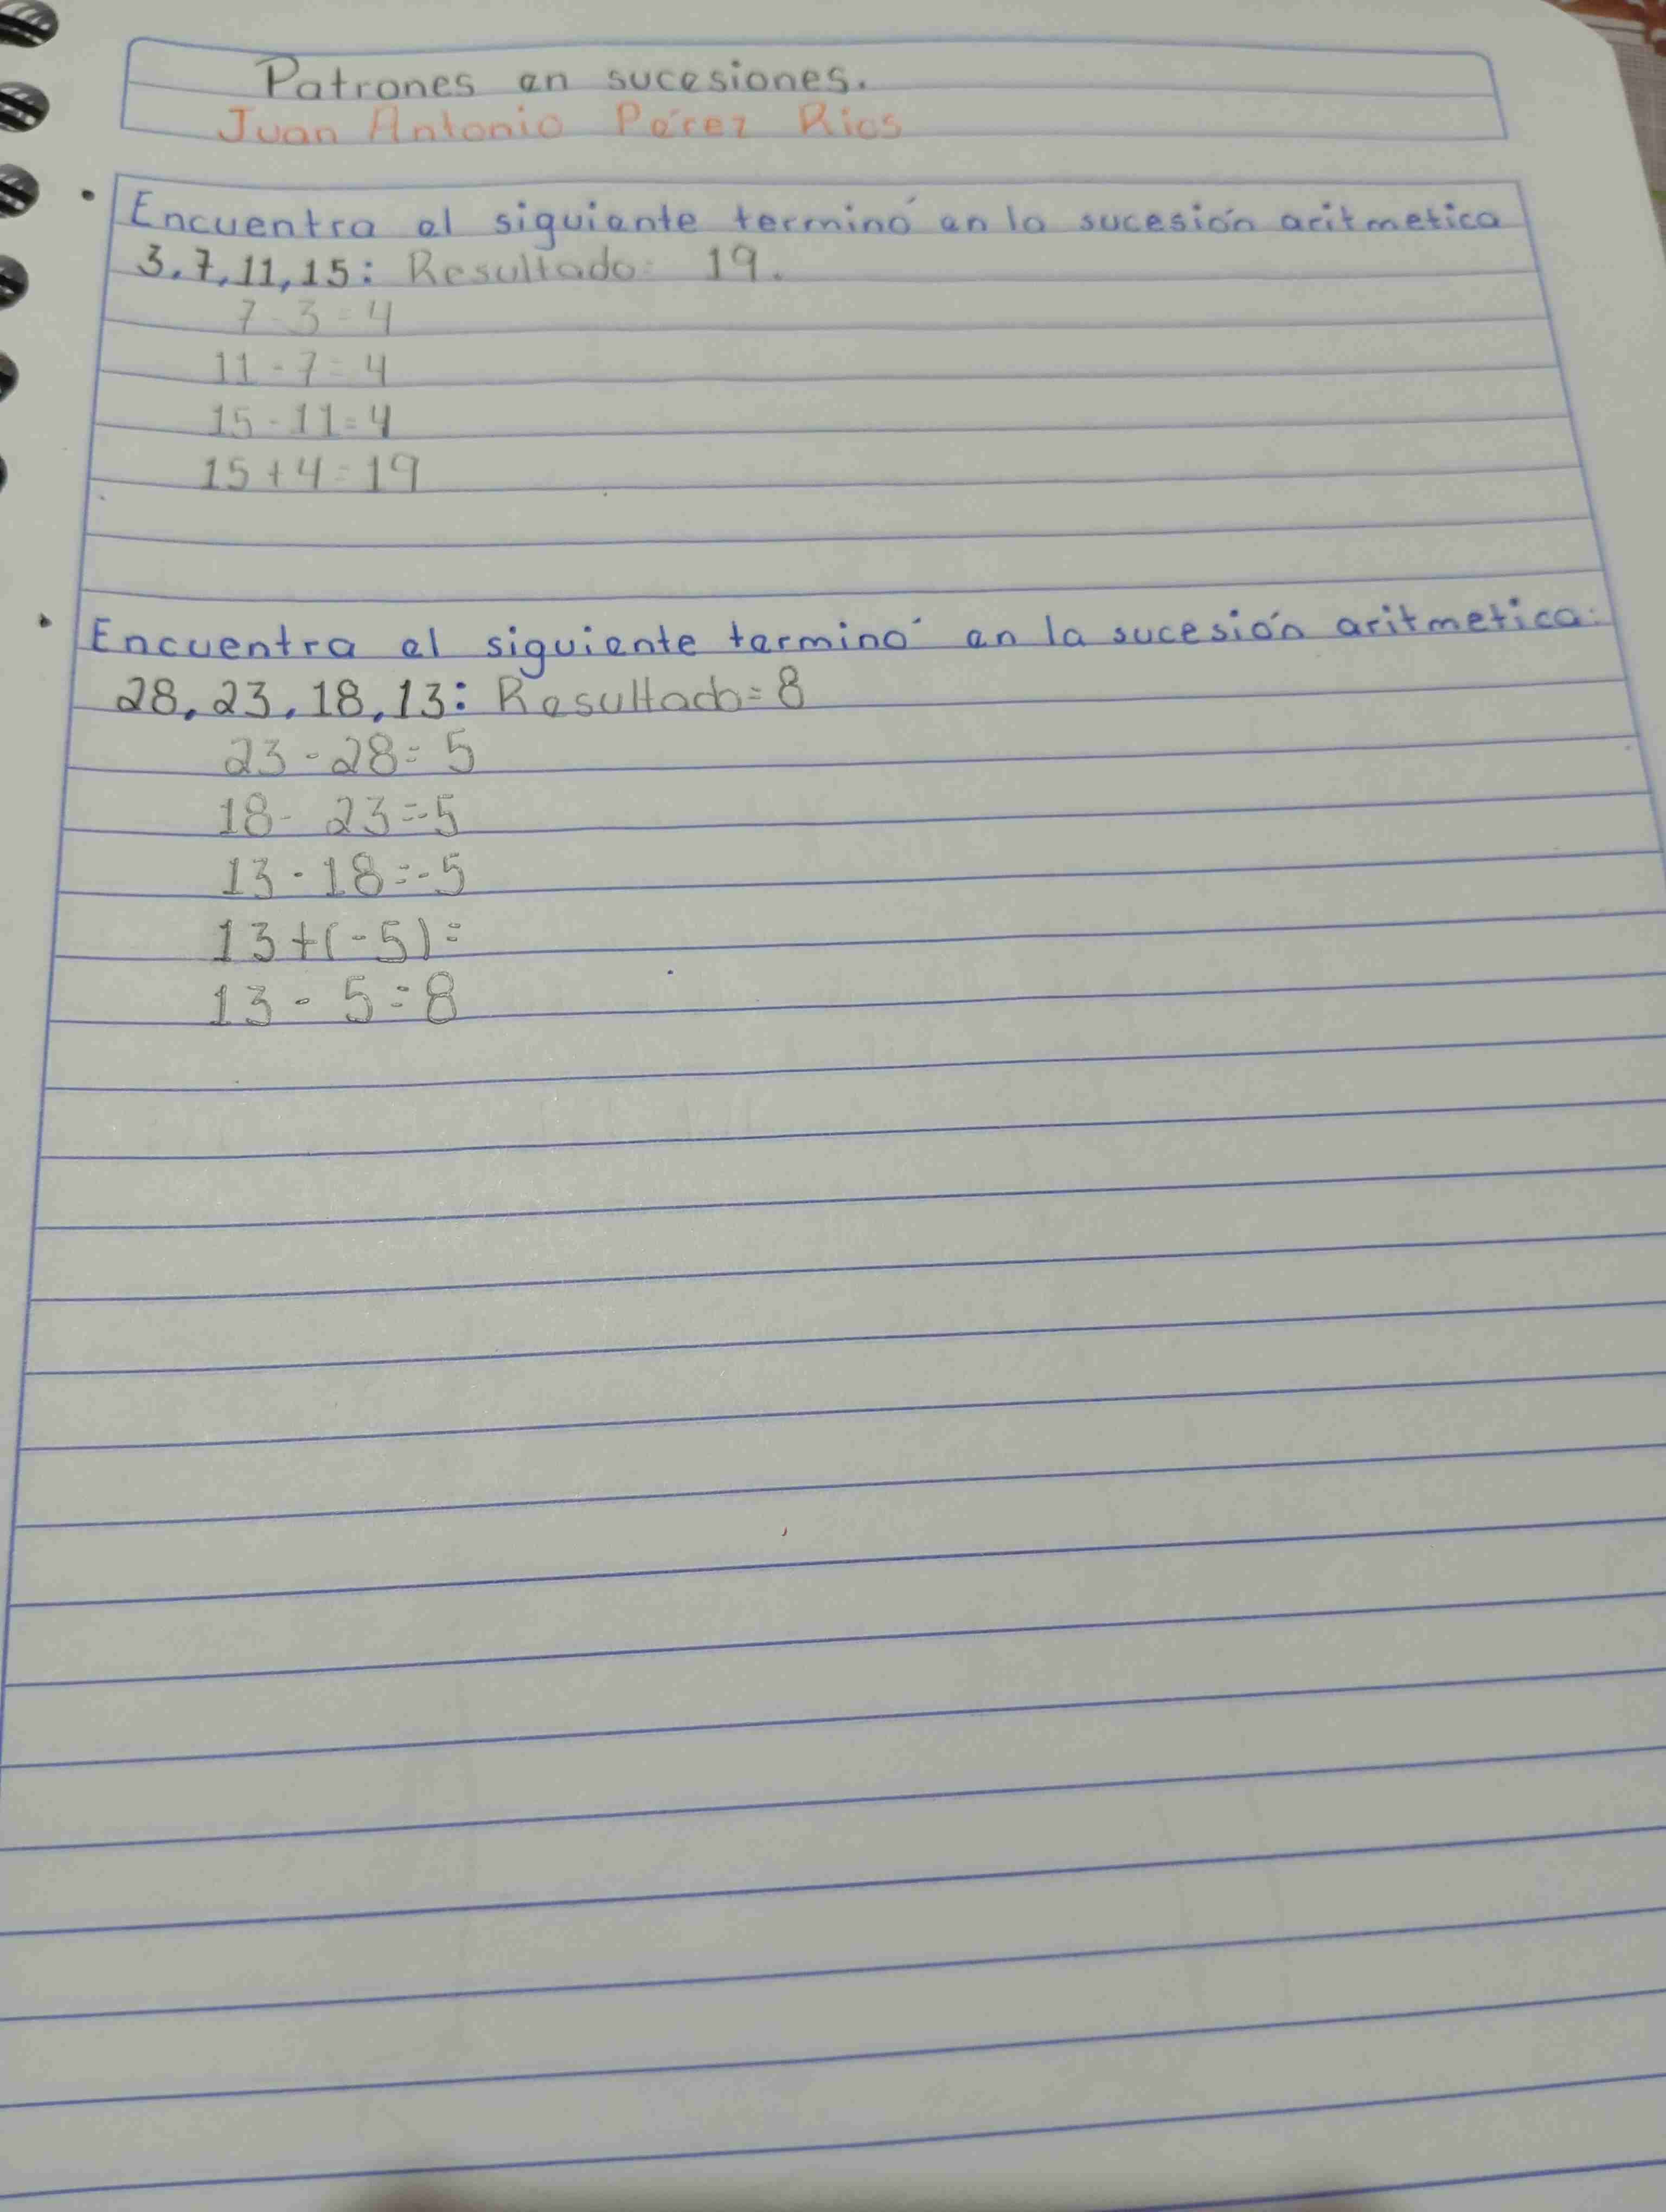 Patrones en sucesiones.
Juan Antonio Pérez Rios
Encuentra el siguiente terminó en la sucesión aritmetica
3,7,11,15: Resultado: 19.
7-3=4
11-7=4
15-11=4
15+4=19
Encuentra el siguiente terminó en la sucesión aritmetica:
28,23,18,13: Resultado=8
23-28=5
18-23=-5
13-18=-5
13+(-5)=
13-5=8